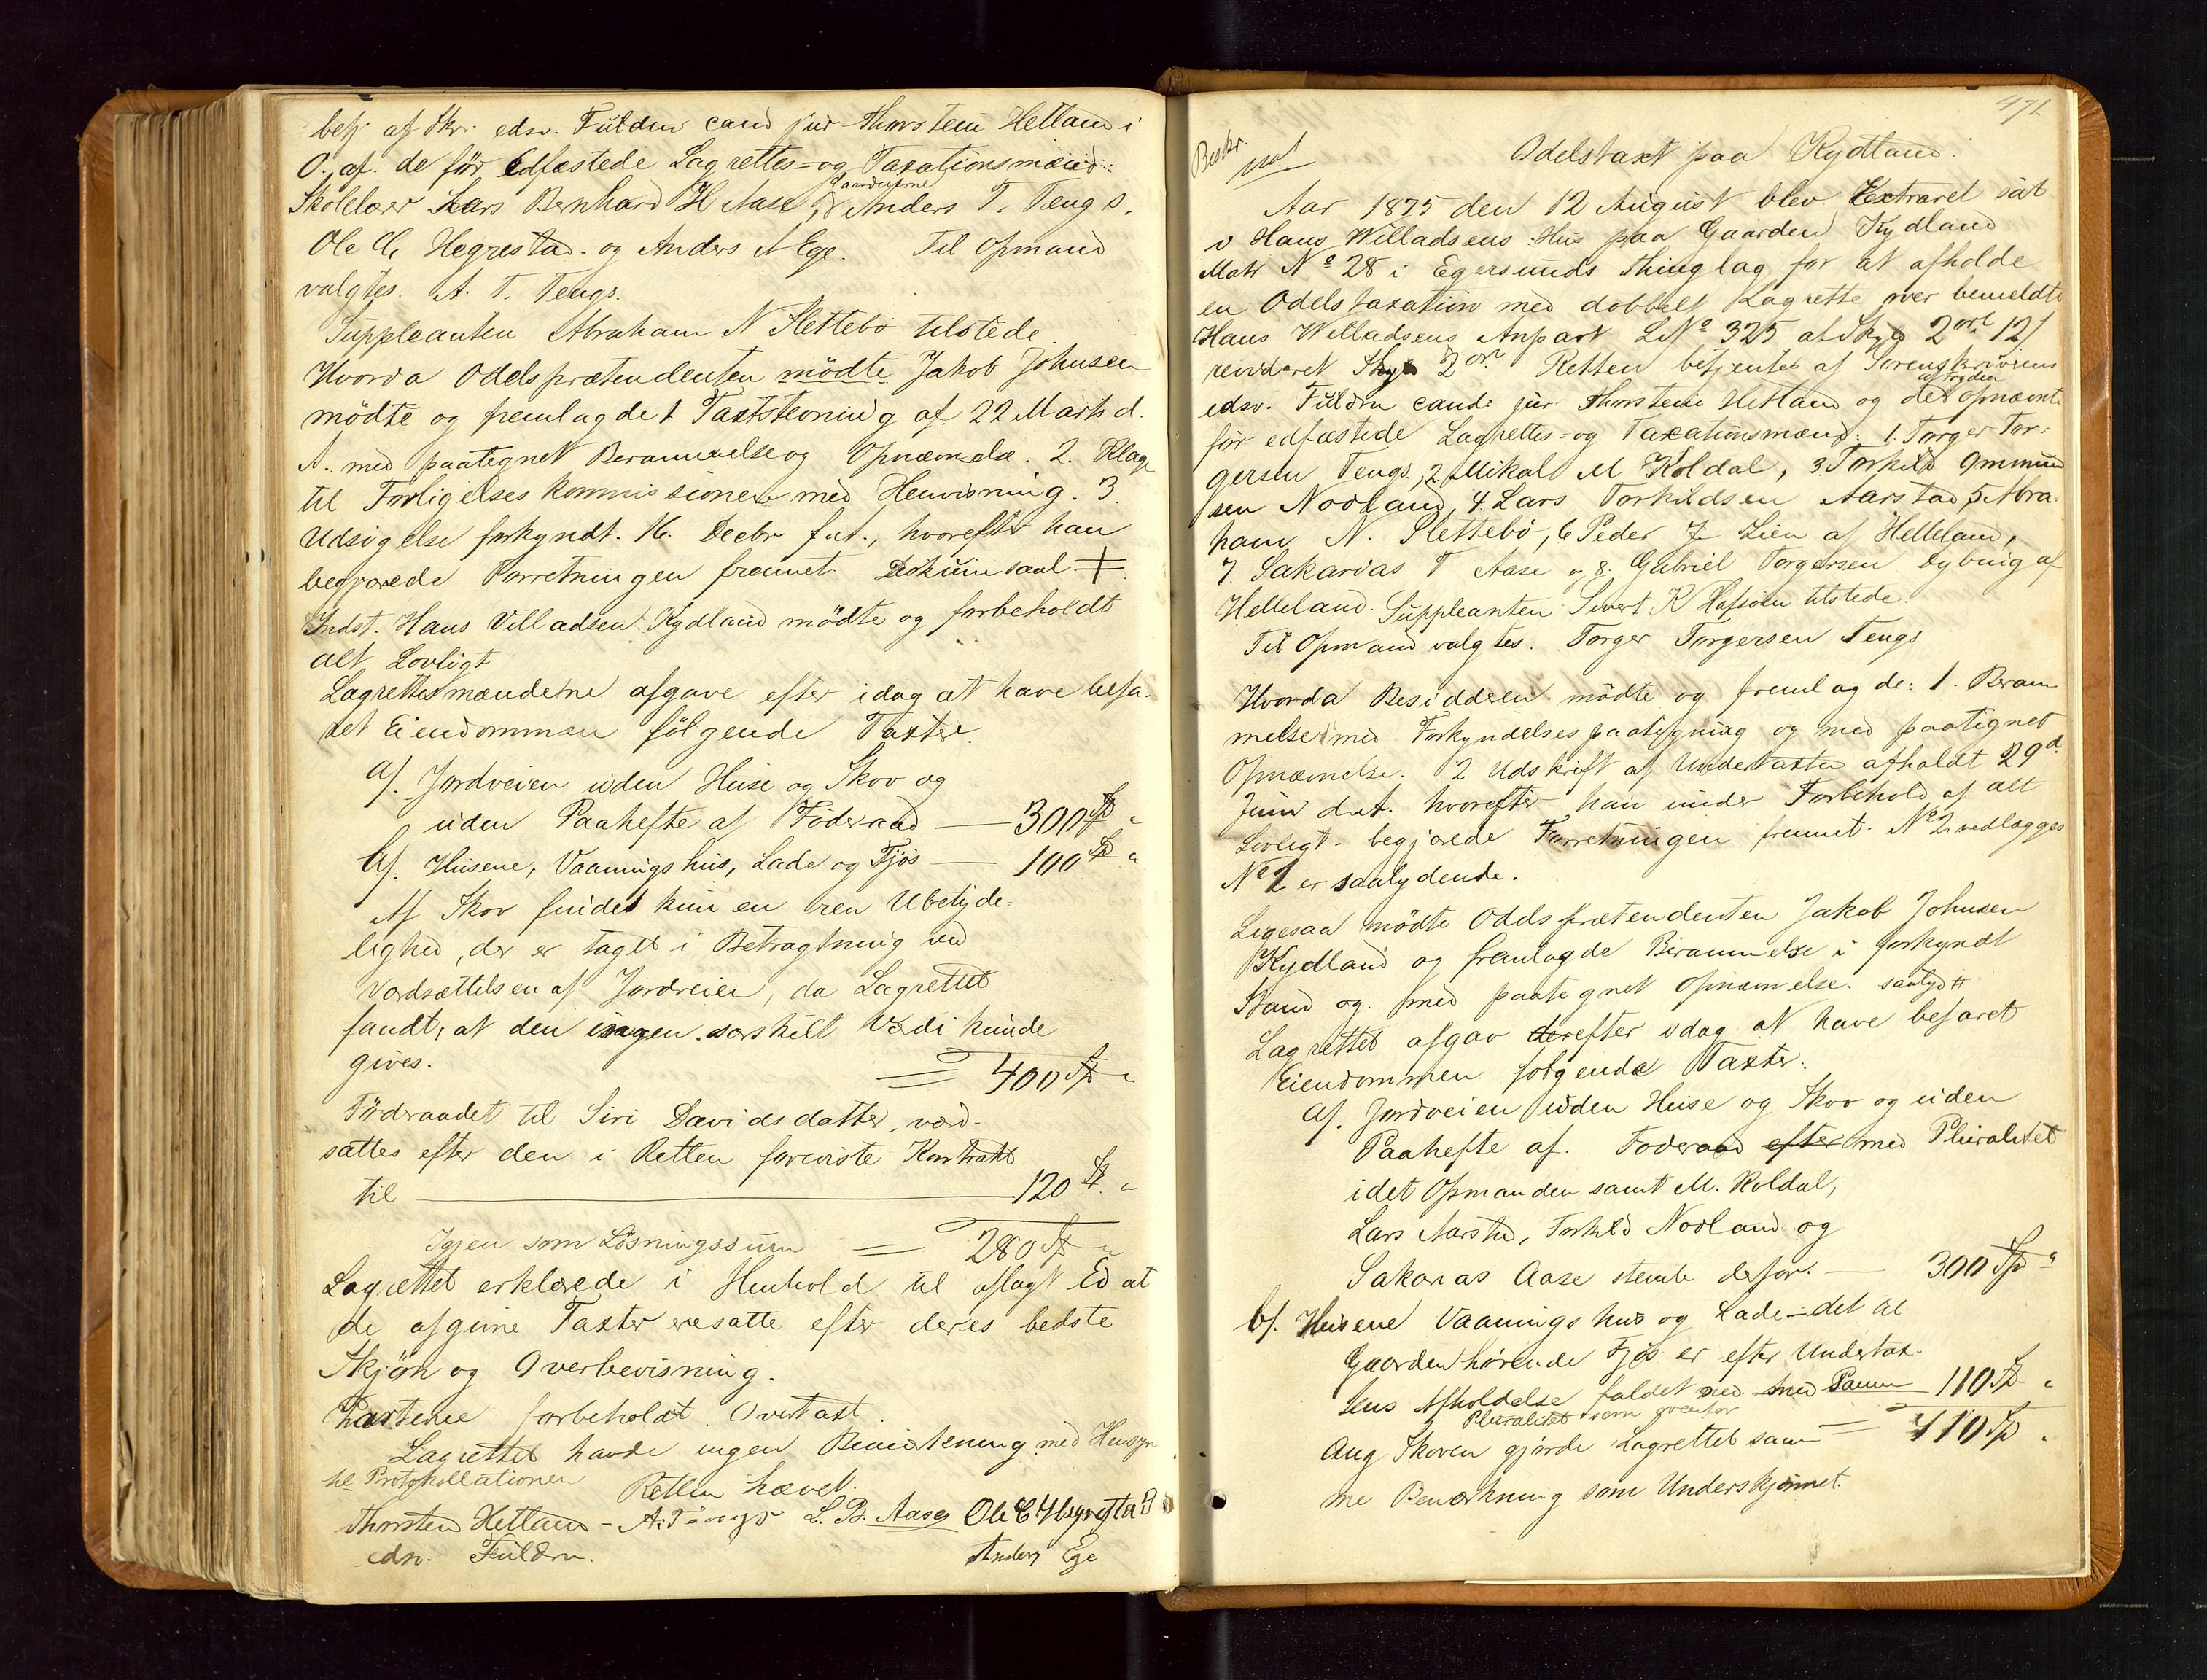 betj. af Skr. edsv. Fuldm cand jur Thorstein Hetland i
O., af. de før Edfæstede Lagrettes- og Taxationsmænd:
Gaardmændene
Skolelærer Lars Bernhard H Aase, Anders T. Tengs,
Ole C. Hegrestad. og Anders A Ege. Til Opmand
valgtes. A. T. Tengs.
Suppleanten Abraham N Slettebø tilstede
Hvorda Odelsprætendenten mødte Jakob Johnsen
mødte og fremlagde 1 Taxtstevning af 22 Marts d.
A. med paategnet Berammelse og Opnævnelse. 2. Klage
til Forligelseskommissionen med Henvisning. 3.
Udsigelse forkyndt. 16. Decbr f. A., hvorefter han
begjærede Forretningen fremmet.
Indst. Hans Villadsen Kydland mødte og forbeholdt
alt Lovligt
Lagrettesmændene afgave efter idag at have befa-
ret Eiendommen følgende Taxter.
a/. Jordveien uden Huse og Skov og
uden Paahefte af Føderaad — 300 Sp "
b/. Husene, Vaaningshus, Lade og Fjøs — 100 Sp "
Af Skov findes kun en ren Ubetyde-
lighed, der er taget i Betragtning ved
Værdsættelsen af Jordveien, da Lagrettet
fandt, at den ingen særskilt Værdi kunde
gives. = 400 Sp "
Føderaadet til Siri Davidsdatter, værd-
sattes efter den i Retten foreviste Kontrakt
til — 120 Sp. "
Igjen som Løsningssum = 280 Sp "
Lagrettet erklærede i Henhold til aflagt Ed at
de afgivne Taxter ere satte efter deres bedste
Skjøn og Overbevisning.
Parterne forbeholdt Overtaxt.
Lagrettet havde ingen Bemærkning med Hensyn
til Protokollationen Retten hævet.
Thorstein Hetland - A. T. Tengs L. B. Aase Ole C Hegrestad
edsv. Fuldm. Anders Ege
471
Beskr.
Odelstaxt paa Kydland.
Aar 1875 den 12 August blev Extraret sat
i Hans Willadsens Hus paa Gaarden Kydland
Matr No 28 i Egersunds Thinglag for at afholde
en Odelstaxation med dobbelt Lagrette over bemeldte
Hans Willadsens Anpart LNo 325 af Skyld 2 ort 12 /
revideret Skyld 2 ort Retten betjentes af Sorenskriverens
af Fogden
edsv. Fuldm cand: jur Thorstein Hetland og det opnævnte
før edfæstede Lagrettes- og Taxationsmænd: 1. Torger Tor-
gersen Tengs, 2 Mikal M Koldal, 3 Torkild Ommund
sen Nodland, 4. Lars Torkildsen Aarstad, 5 Abra-
ham N. Slettebø, 6 Peder T Lien af Helleland,
7. Sakarias T Aase og 8. Gabriel Torgersen Dybing af
Helleland. Suppleanten Sivert R Hafsøen tilstede.
Til Opmand valgtes. Torger Torgersen Tengs
Hvorda Besidderen mødte og fremlagde: 1. Beram-
melse med Forkyndelsespaategning og med paategnet
Opnævnelse. 2 Udskrift af Undertaxten afholdt 29d
Juni d. A. hvorefter han under Forbehold af alt
Lovligt begjærede Forretningen fremmet. No 2 vedlægges
No 1 er saalydende.
Ligesaa mødte Odelsprætendenten Jakob Johnsen
Kydland og fremlagde Berammelse i forkyndt
Stand og med paategnet Opnævnelse. saalyd
Lagrettet afgav derefter idag at have befaret
Eiendommen følgende Taxter:
a/. Jordveien uden Huse og Skov og uden
Paahefte af. Føderaad efter med Pluralitet
idet Opmanden samt M. Koldal,
Lars Aarstad, Torkild Nodland og
Sakarias Aase stemte derfor. — 300 Sp "
b/. Husene Vaaningshus og Lade - det til
Gaarden hørende Fjøs er efter Undertax-
tens Afholdelse faldet ned - med samme — 110 Sp "
Pluralitet som ovenfor = 410 Sp "
Ang Skoven gjorde Lagrettet sam-
me Bemærkning som Underskjønnet.